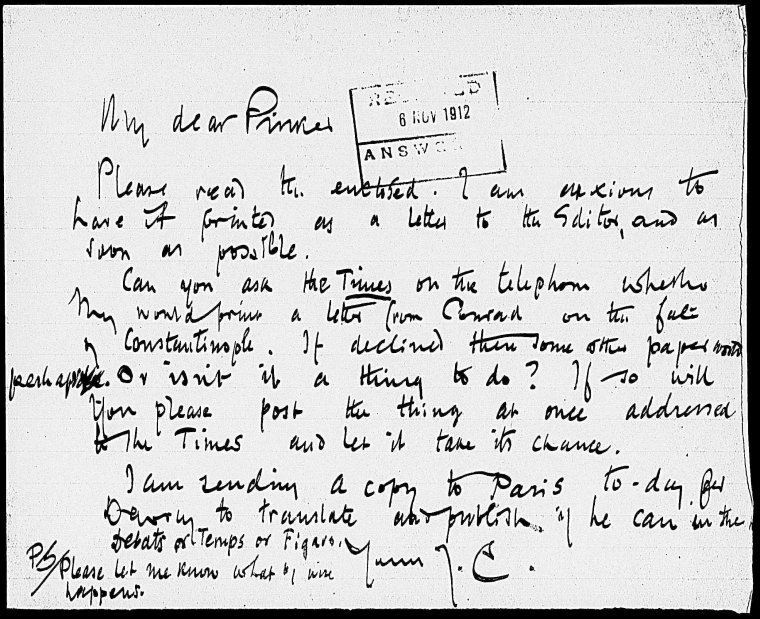 My dear Pinker
RECEIVED
6 NOV 1912
ANSWERED
Please read the enclosed. I am anxious to
have it printed as a letter to the Editor, and as
soon as possible.
Can you ask the Times on the telephone whether
they would print a letter from Conrad on the fall
of Constantinople. If declined then some other paper would
perhaps. Or isn't it a thing to do? If so will
you please post the thing at once addressed
to the Times and let it take its chance.
I am sending a copy to Paris to-day for
Davray to translate and publish if he can in the
Debats or Temps or Figaro. Yours J. C.
P/S/ Please let me know what by wire
happens.